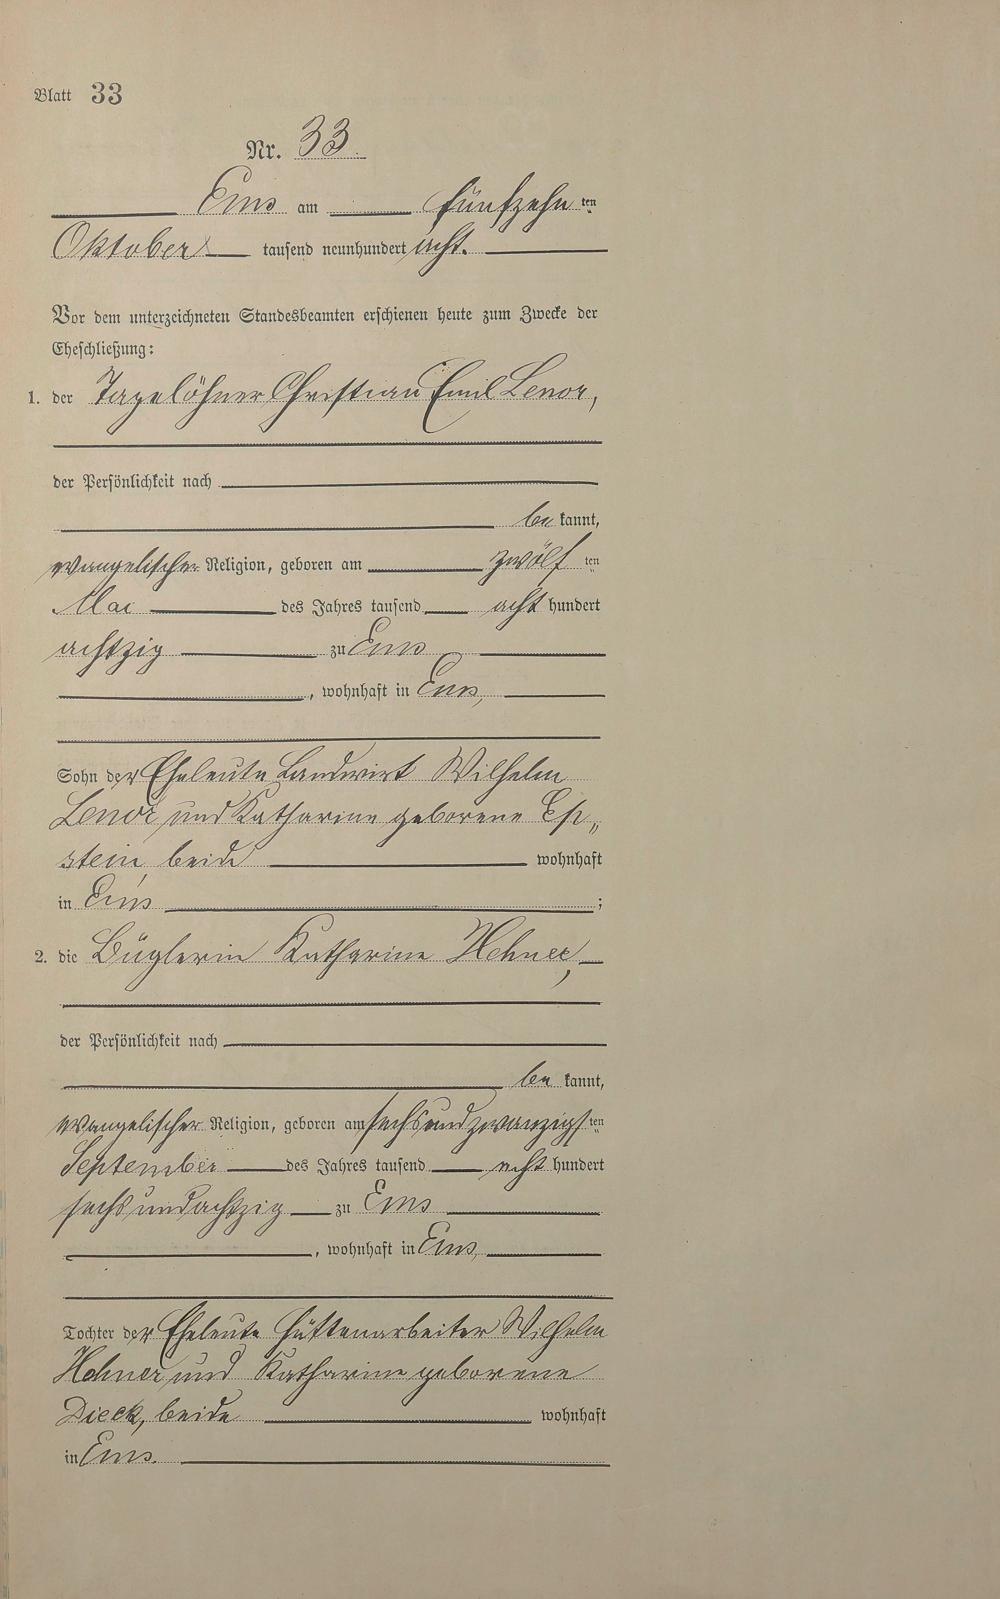 Blatt 33
Nr. 33.
Ems am fünfzehnten
Oktober tausend neunhundert acht.
Vor dem unterzeichneten Standesbeamten erschienen heute zum Zwecke der
Eheschließung:
1. der Tagelöhner Christian Emil Lenor,
der Persönlichkeit nach
bekannt,
evangelischer Religion, geboren am zwölften
Mai des Jahres tausend acht hundert
achtzig zu Ems
, wohnhaft in Ems,
Sohn der Eheleute Landwirt Wilhelm
Lenor und Katharine geborene Ep„
stein, beide wohnhaft
in Ems ;
2. die Büglerin Katharine Hehner,
der Persönlichkeit nach
bekannt,
evangelischer Religion, geboren am sechsundzwanzigsten
September des Jahres tausend acht hundert
sechsundachtzig zu Ems
, wohnhaft in Ems,
Tochter der Eheleute Hüttenarbeiter Wilhelm
Hehner und Katharine geborene
Dieck, beide wohnhaft
in Ems.